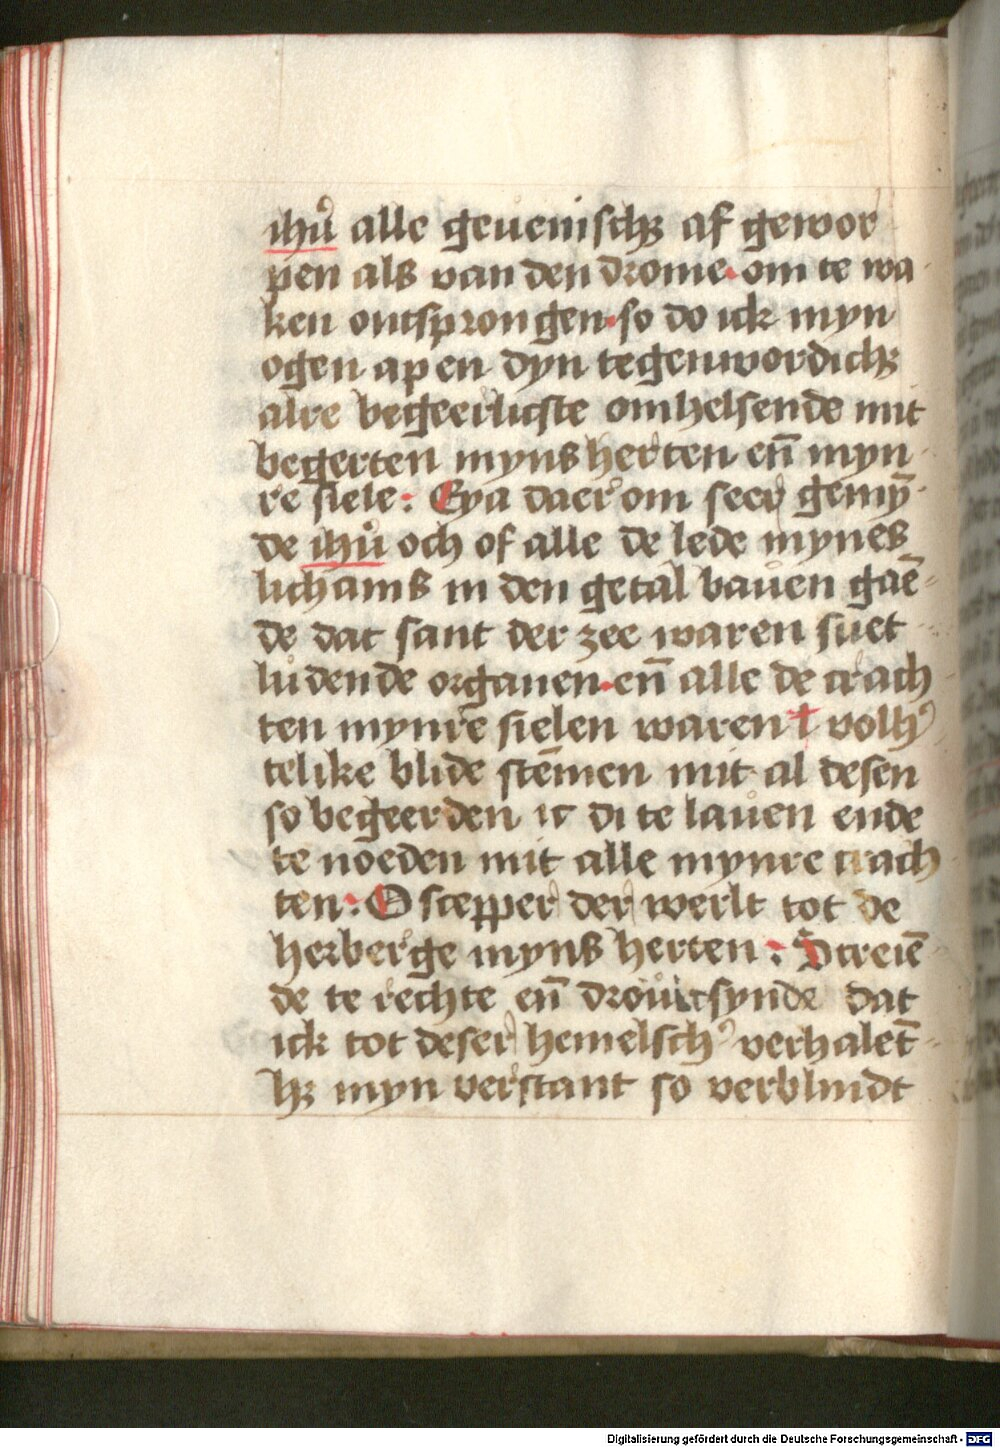 ihū alle geueinischꝫ af gewor
pen als van den drome. om te wa
ken ontsprongen. so do ick myn
ogen apen dyn tegenwordichꝫ
alre begeerlicste omhelsende mit
begerten myns herten en̄ myn
re siele: Eya daer om seer gemȳ
de ihū och of alle de lede mynes
lichams in den getal bauen gaē
de dat sant der zee waren suet
lůdende organen. en̄ alle de crach
ten mynre sielen waren volh
telike blide stēmen mit al desen
so begeerden ic di te lauen ende
te noeden mit alle mynre crach
ten: O scepper der werlt tot de
herberge myns herten: Screiē
de te rechte en̄ drouicsynde dat
ick tot deser hemelsch' verhalet
hꝫ myn verstant so verblindt
Digitalisierung gefördert durch die Deutsche Forschungsgemeinschaft - DFG